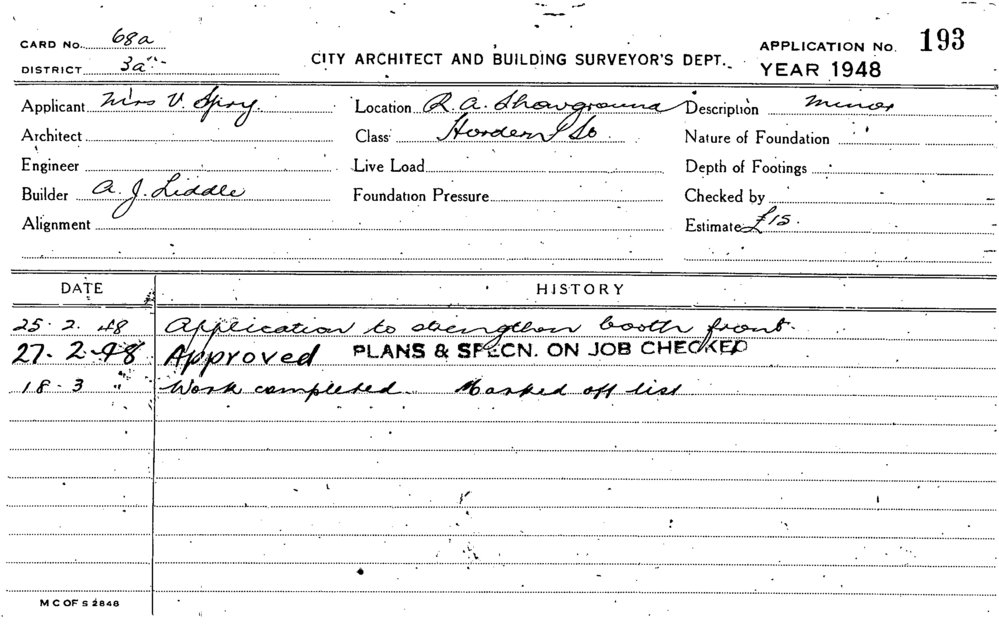 CARD No. 68a
DISTRICT 3a
CITY ARCHITECT AND BUILDING SURVEYOR'S DEPT.
APPLICATION No. 193
YEAR 1948
Applicant Mrs V. Spry. Location R. A. Showground Description minor
Architect Class Hordern Nature of Foundation
Engineer Live Load Depth of Footings
Builder A. J. Liddle Foundation Pressure Checked by
Alignment Estimate £15.
DATE HISTORY
25. 2. 48 Application to strengthen booth front.
27. 2. 48 Approved PLANS & SPECN. ON JOB CHECKED
18. 3 " Work completed. Marked off list
M C OF S 2848